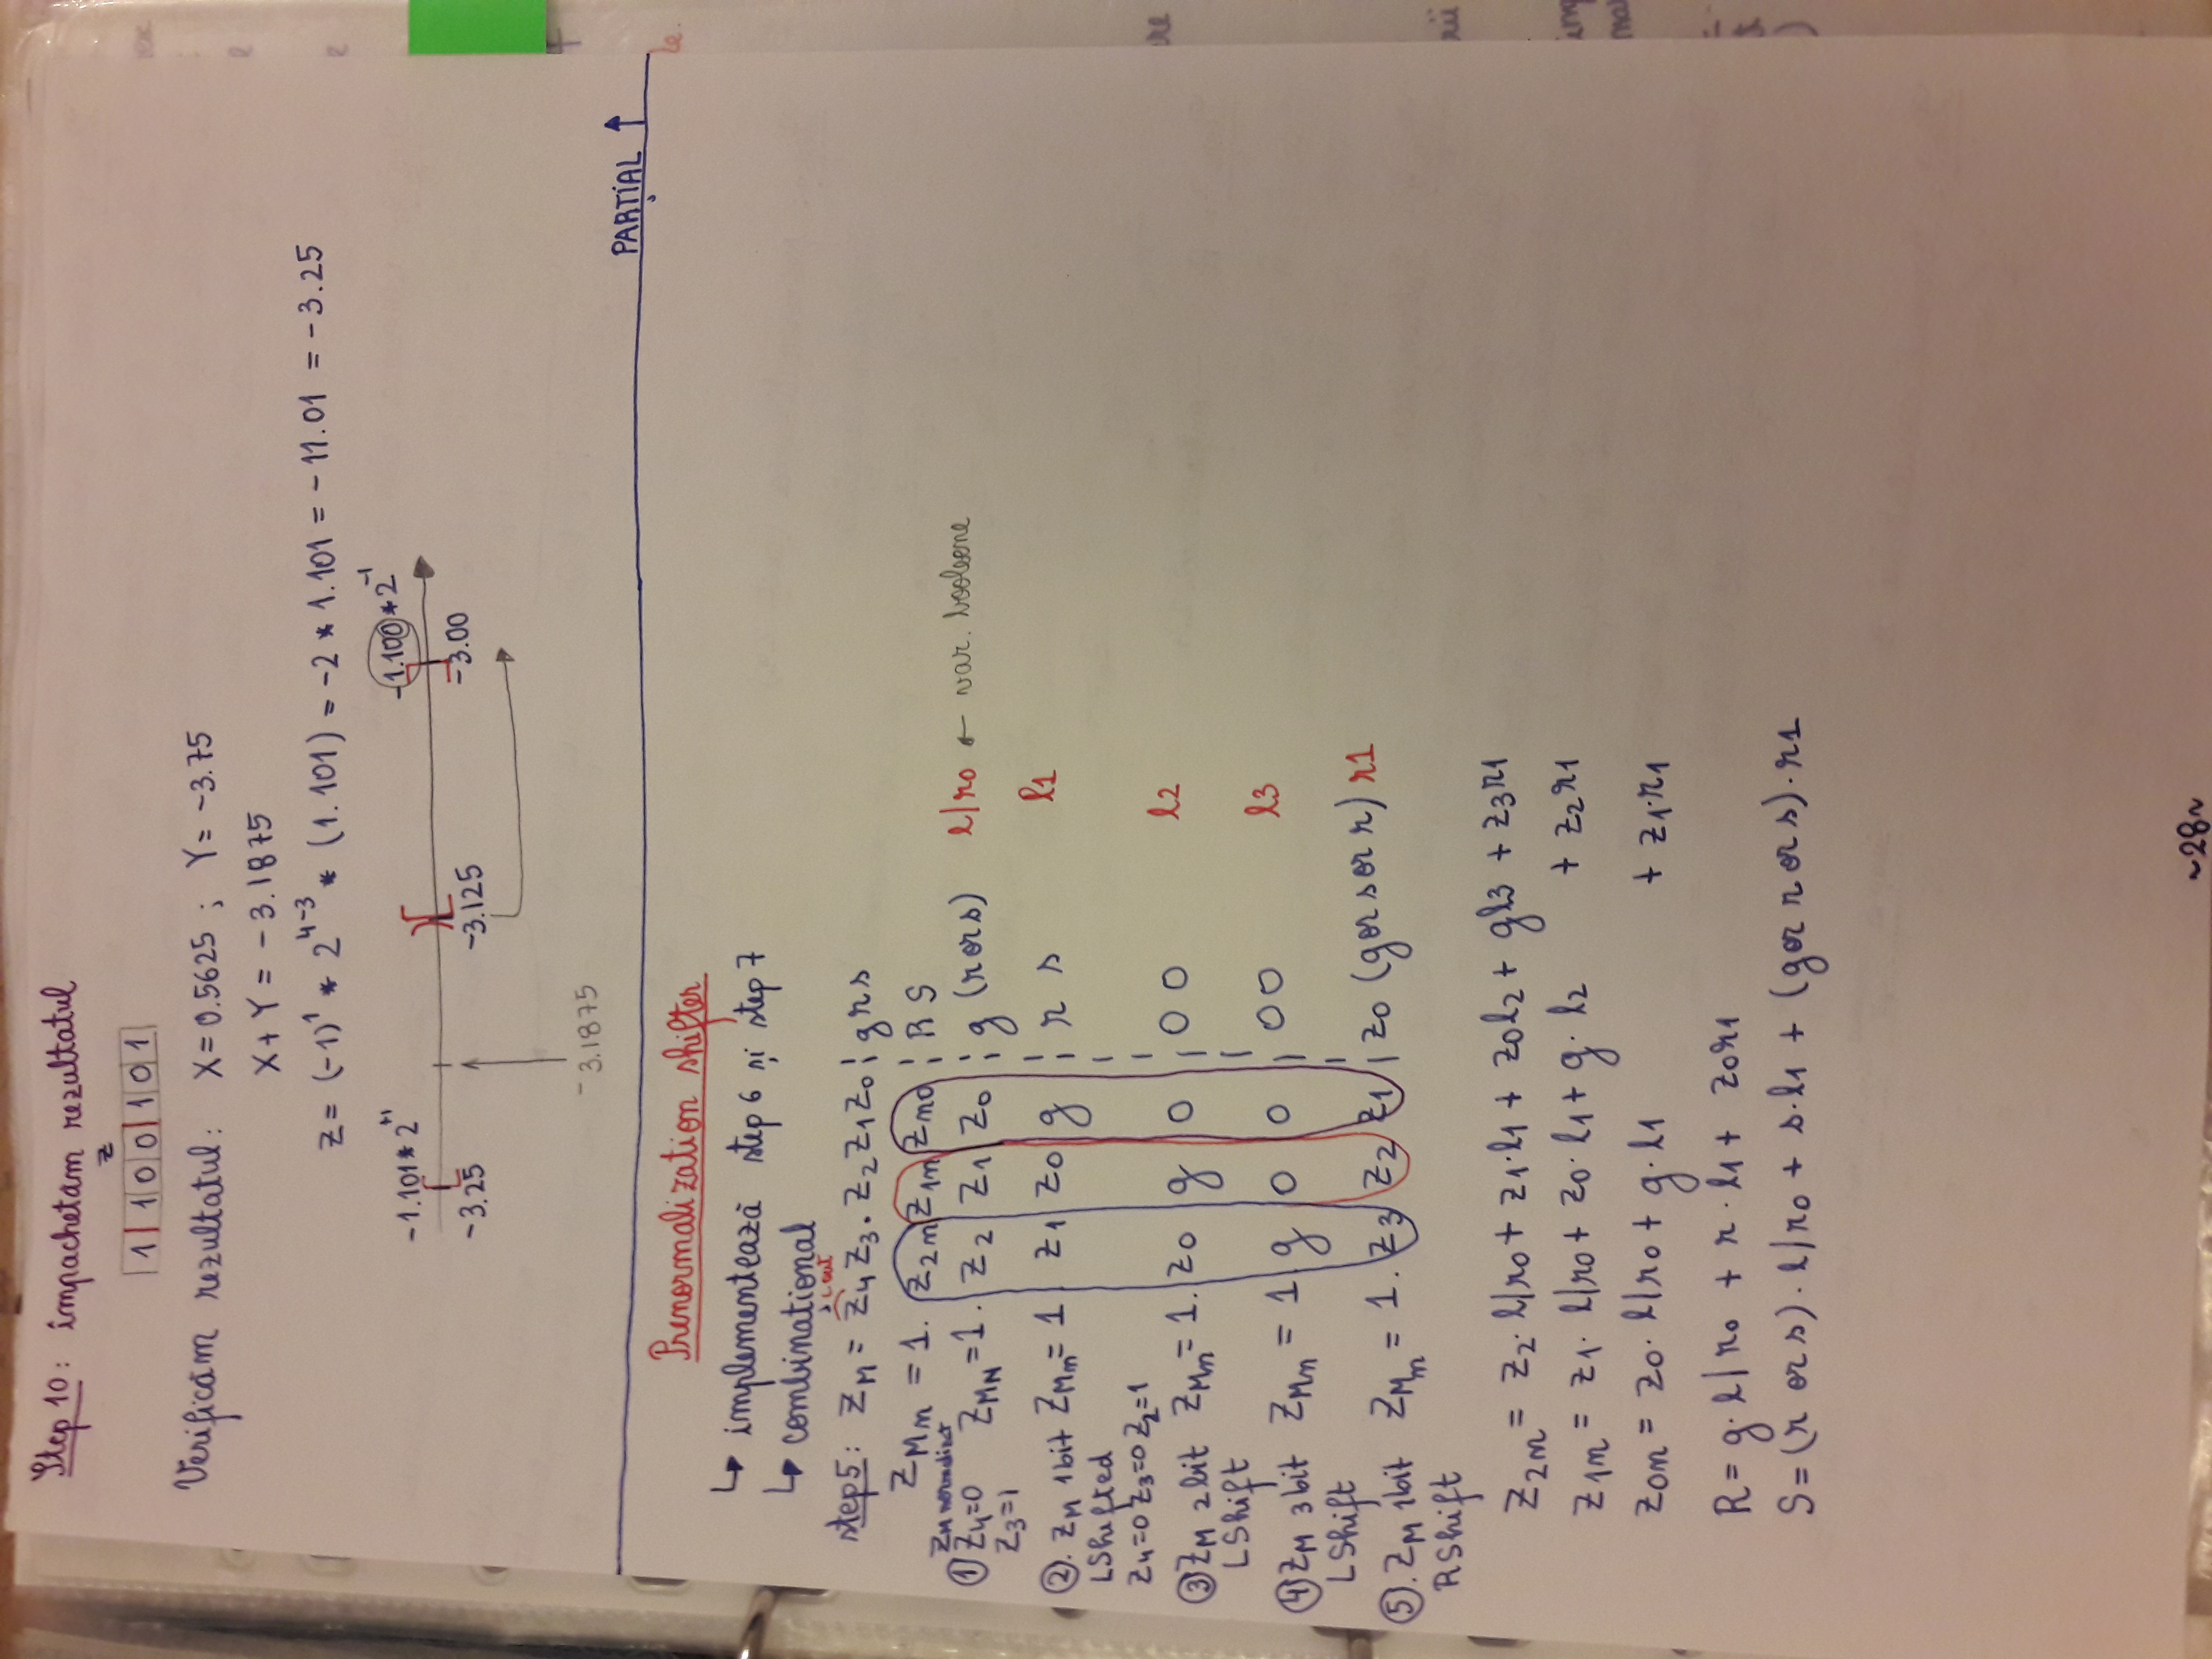 Step 10: împachetăm rezultatul
Z
1 | 1 0 0 | 1 0 1
Verificăm rezultatul: X=0.5625 ; Y= -3.75
X+Y = -3.1875
Z= (-1)^1 * 2^(4-3) * (1.101) = -2 * 1.101 = -11.01 = -3.25
-1.101*2^+1 -1.100*2^-1
-3.25 -3.125 -3.00
-3.1875
PARȚIAL ↑
Prenormalization shifter
↳ implementează step 6 și step 7
↳ combinational
step5: Z_M = Z4 Z3 . Z2 Z1 Z0 ¦ g r s
Z_Mn = 1. Z2n Z1n Zn0 ¦ R S
Z_M normalizat
① Z4=0 Z_MN = 1. Z2 Z1 Z0 ¦ g (r or s) l/r0 ← var. booleene
Z3=1
②. Z_M 1bit Z_Mn = 1 Z1 Z0 g ¦ r s l1
LShifted
Z4=0 Z3=0 Z2=1
③ Z_M 2bit Z_Mn = 1. Z0 g 0 ¦ 0 0 l2
LShift
④ Z_M 3bit Z_Mn = 1 g 0 0 ¦ 0 0 l3
LShift
⑤. Z_M 1bit Z_Mn = 1. Z3 Z2 Z1 ¦ Z0 (g or s or r) r1
RShift
Z2n = Z2· l/r0 + Z1·l1 + Z0l2 + gl3 + Z3r1
Z1n = Z1· l/r0 + Z0·l1 + g·l2 + Z2r1
Z0n = Z0· l/r0 + g·l1 + Z1·r1
R= g·l/r0 + r·l1 + Z0r1
S= (r or s)·l/r0 + s·l1 + (g or r or s)·r1
~28~